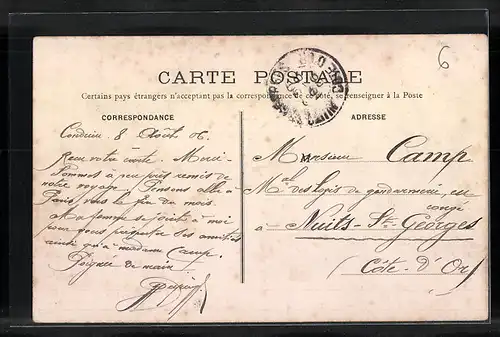 6
CARTE POSTALE
Certains pays étrangers n'acceptant pas la correspondance de ce côté, se renseigner à la Poste
CORRESPONDANCE
ADRESSE
Condrieu 8 Août 06.
Reçu votre carte. Merci.
Sommes à peu près remis de
notre voyage. Pensons aller à
Paris vers la fin du mois.
Ma femme se joint à moi
pour vous présenter ses amitiés
ainsi qu'à madame Camp.
Poignée de main
Monsieur Camp
Mal des logis de gendarmerie en
congé
à Nuits-St-Georges
(Côte-d'Or)